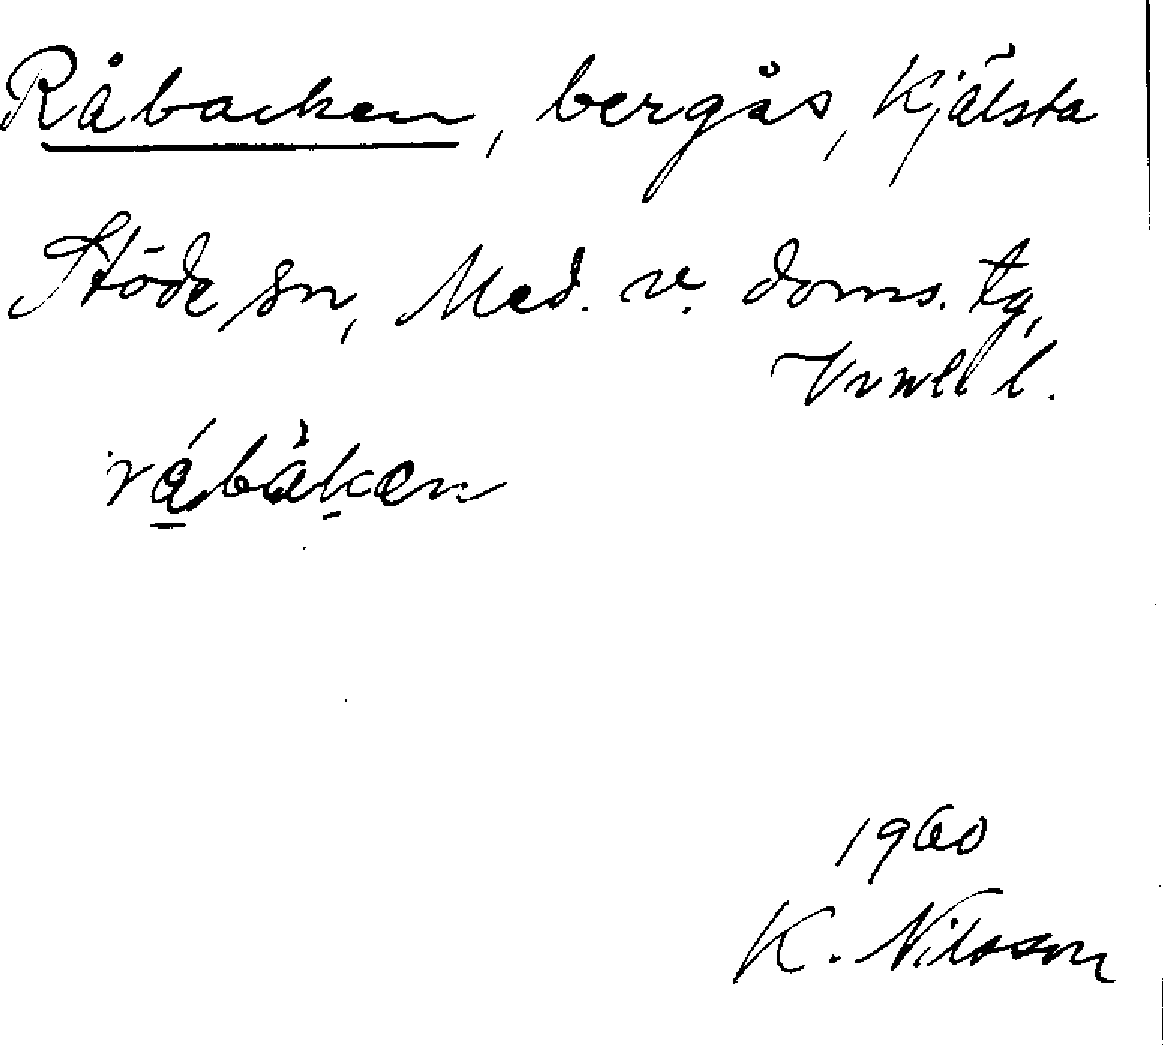 Råbacken, bergås, Kjälsta
Stöde sn, Med. v. doms. tg,
Vrnll l.
rábàken
1960
K. Nilsson